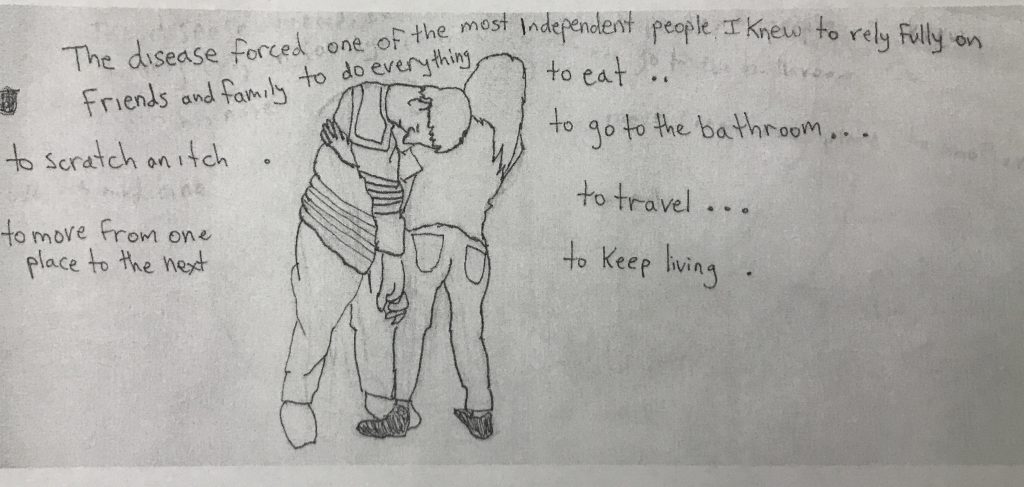 The disease forced one of the most Independent people I knew to rely fully on
friends and family to do everything
to scratch an itch .
to move from one
place to the next
to eat ..
to go to the bathroom...
to travel ...
to keep living .